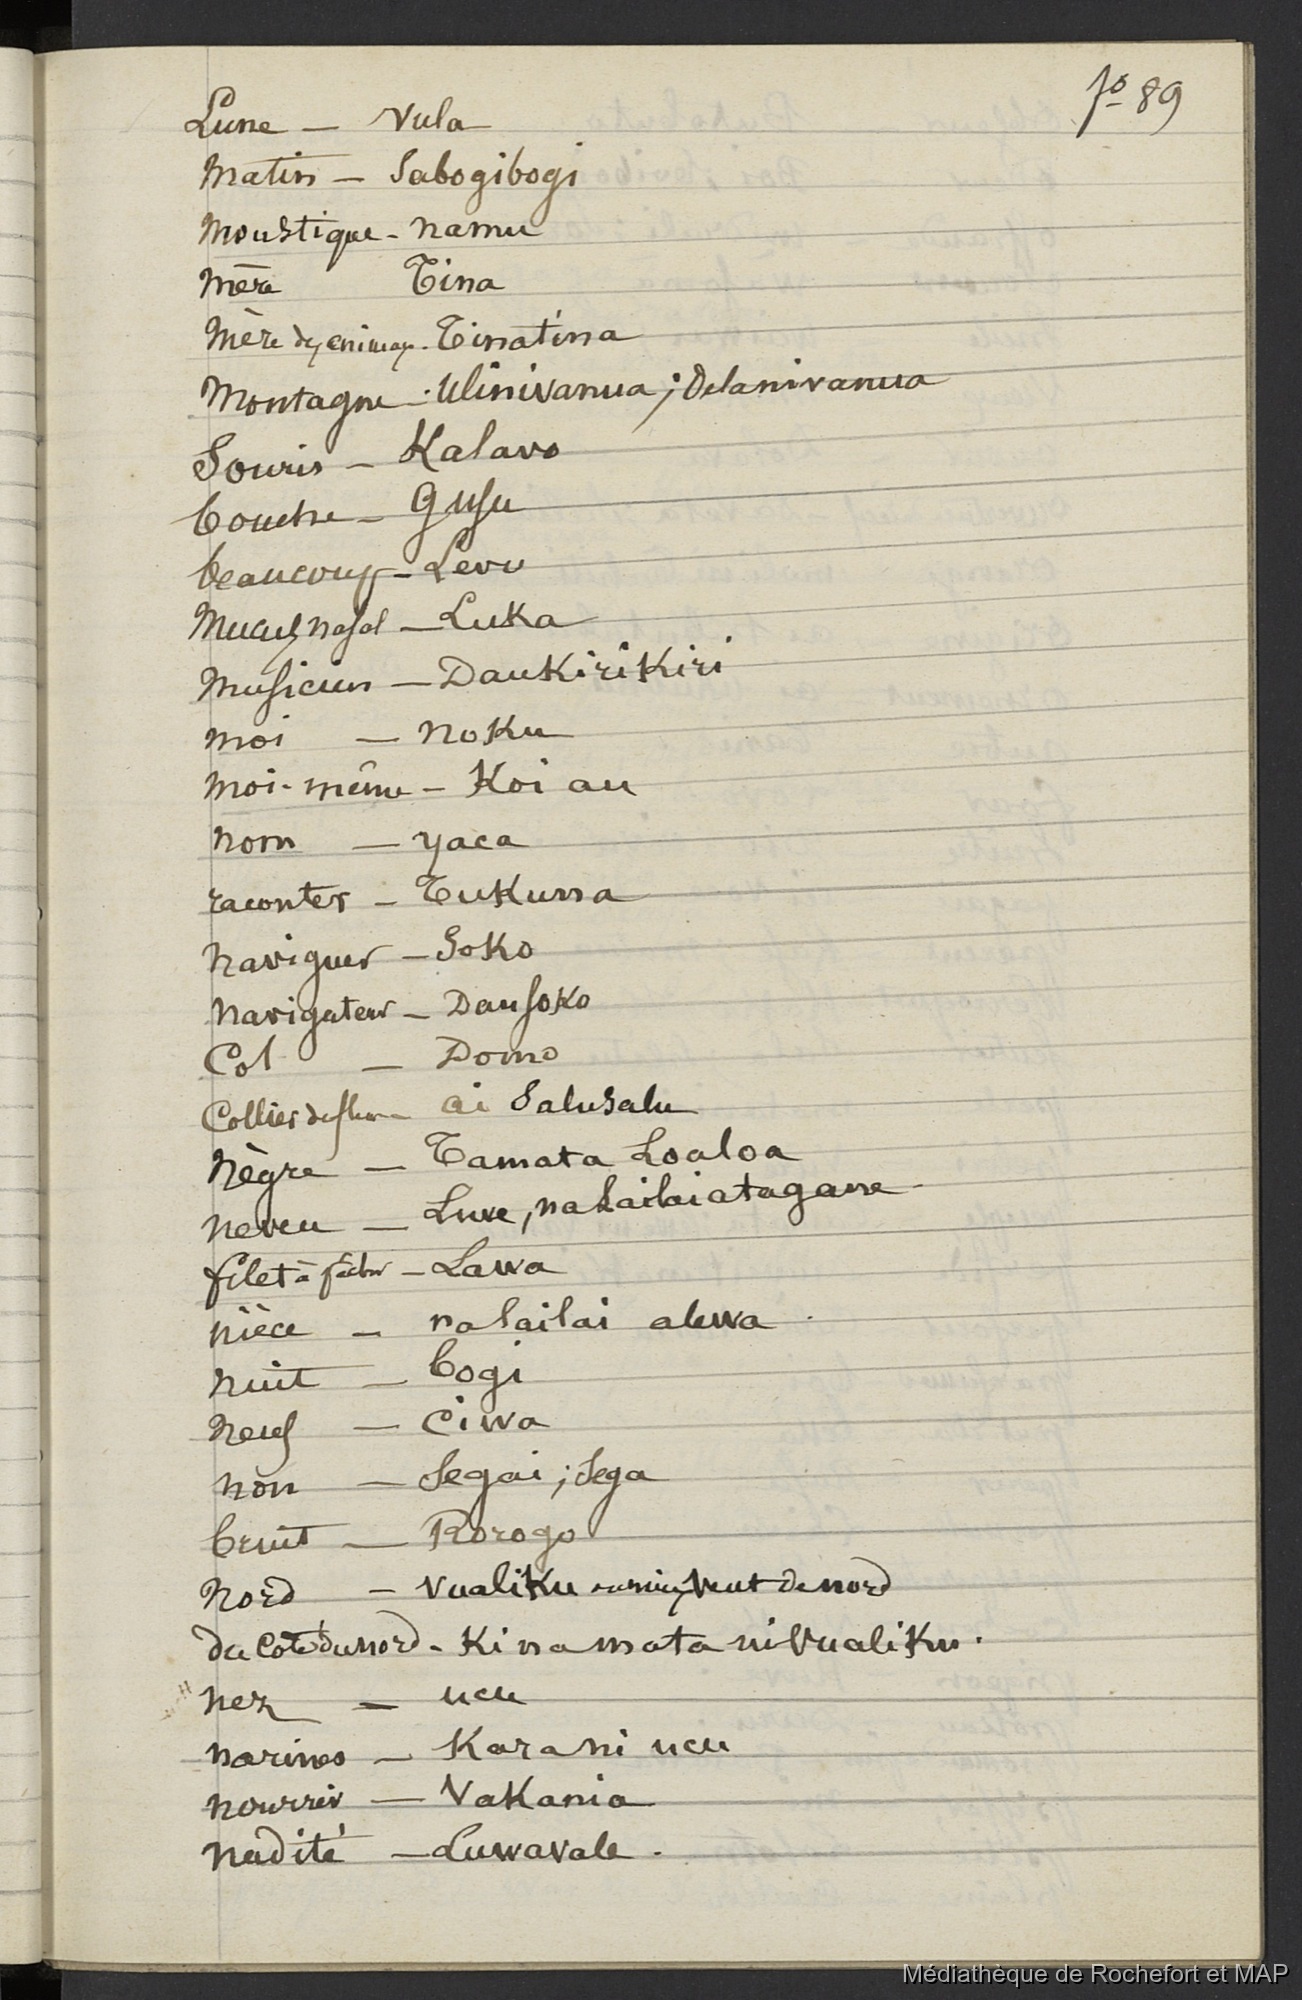 fo 89
Lune — Vula
Matin — Sabogibogi
Moustique - namu
Mère Tina
Mère des animaux - Tinatina
Montagne - Ulinivanua ; Delanivanua
Souris — Kalavo
bouche — Gusu
beaucoup — Levu
Mucus nasal — Luka
Musicien — Daukirikiri
moi — noku
moi-même — Koi au
nom — yaca
raconter — Tukuna
naviguer — Soko
navigateur — Dausoko
Col — Domo
Collier de fleurs — ai Salusalu
nègre — Tamata Loaloa
neveu — Luve, na lailai a tagane
filet à pêcher — Lawa
nièce — na lailai alewa
nuit — bogi
neuf — ciwa
non — Segai ; Sega
bruit — Rorogo
nord — Vualiku vent de nord
du coté du nord - Ki na mata ni Vualiku.
nez — ucu
narines — Kara ni ucu
nourrir — Vakania
nudité — Luwavale.
Médiathèque de Rochefort et MAP